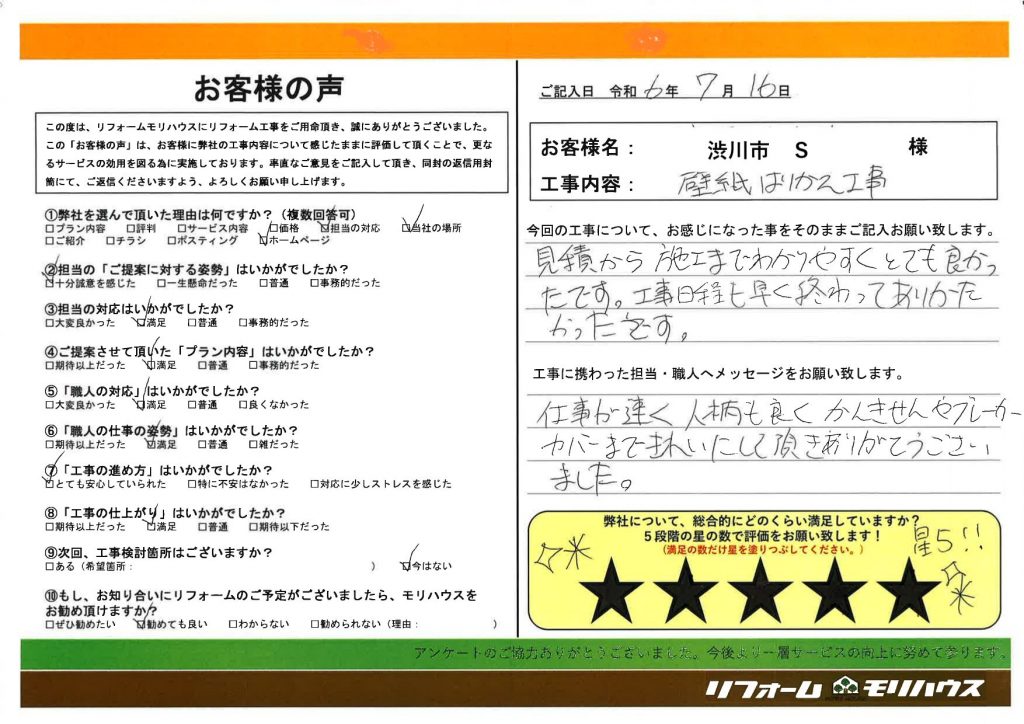 お客様の声
この度は、リフォームモリハウスにリフォーム工事をご用命頂き、誠にありがとうございました。
この「お客様の声」は、お客様に弊社の工事内容について感じたままに評価して頂くことで、更な
るサービスの効用を図る為に実施しております。率直なご意見をご記入して頂き、同封の返信用封
筒にて、ご返信くださいますよう、よろしくお願い申し上げます。
①弊社を選んで頂いた理由は何ですか？（複数回答可）
□プラン内容 □評判 □サービス内容 □価格 ☑担当の対応 ☑当社の場所
□ご紹介 □チラシ □ポスティング ☑ホームページ
②担当の「ご提案に対する姿勢」はいかがでしたか？
☑十分誠意を感じた □一生懸命だった □普通 □事務的だった
③担当の対応はいかがでしたか？
□大変良かった ☑満足 □普通 □事務的だった
④ご提案させて頂いた「プラン内容」はいかがでしたか？
□期待以上だった ☑満足 □普通 □事務的だった
⑤「職人の対応」はいかがでしたか？
□大変良かった ☑満足 □普通 □良くなかった
⑥「職人の仕事の姿勢」はいかがでしたか？
□期待以上だった ☑満足 □普通 □雑だった
⑦「工事の進め方」はいかがでしたか？
☑とても安心していられた □特に不安はなかった □対応に少しストレスを感じた
⑧「工事の仕上がり」はいかがでしたか？
□期待以上だった ☑満足 □普通 □期待以下だった
⑨次回、工事検討箇所はございますか？
□ある（希望箇所： ） ☑今はない
⑩もし、お知り合いにリフォームのご予定がございましたら、モリハウスを
お勧め頂けますか？
□ぜひ勧めたい ☑勧めても良い □わからない □勧められない（理由： ）
ご記入日 令和 6年 7月 16日
お客様名： 渋川市 S 様
工事内容： 壁紙はりかえ工事
今回の工事について、お感じになった事をそのままご記入お願い致します。
見積から施工までわかりやすくとても良かっ
たです。工事日程も早く終わってありがた
かったです。
工事に携わった担当・職人へメッセージをお願い致します。
仕事が速く人柄も良くかんきせんやブレーカー
カバーまできれいにして頂きありがとうござい
ました。
弊社について、総合的にどのくらい満足していますか？
５段階の星の数で評価をお願い致します！
（満足の数だけ星を塗りつぶしてください。）
星5!!
★★★★★
アンケートのご協力ありがとうございました。今後より一層サービスの向上に努めて参ります。
リフォーム モリハウス